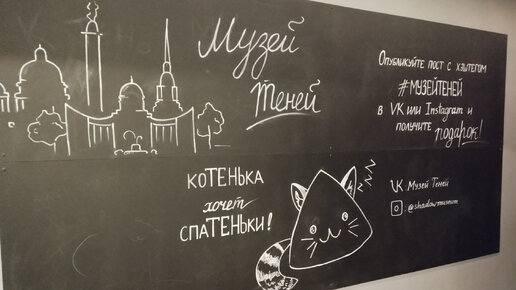 Музей
Теней
Опубликуйте пост с хэштегом
#МУЗЕЙТЕНЕЙ
в VK или Instagram и
получите подарок!
коТЕНЬКА
хочет
спаТЕНЬки!
VK: Музей Теней
: @shadowmuseum